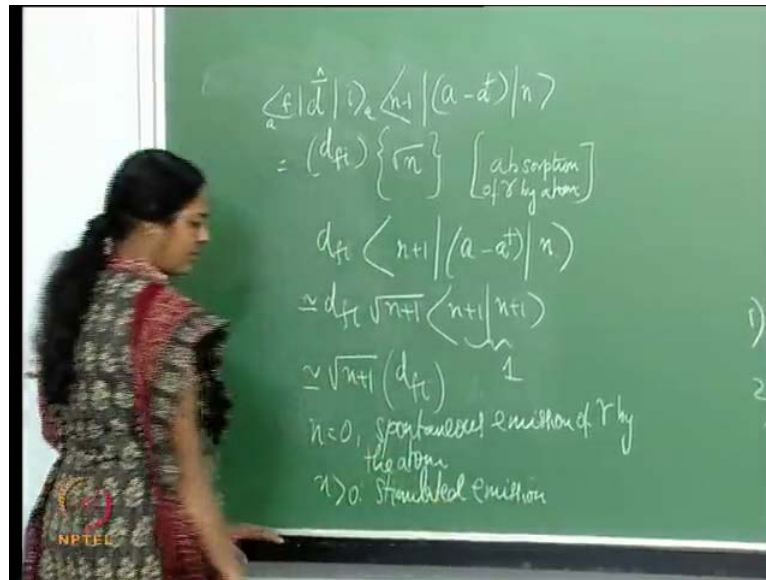 ₐ<f|d̂|i>ₐ <n-1|(a-a†)|n>
= (d_fi) {√n} [absorption
of γ by atom]
d_fi <n+1|(a-a†)|n>
≃ d_fi √n+1 <n+1|n+1>
1
≃ √n+1 (d_fi)
n=0, spontaneous emission of γ by
the atom
n>0: stimulated emission
1)
2
NPTEL